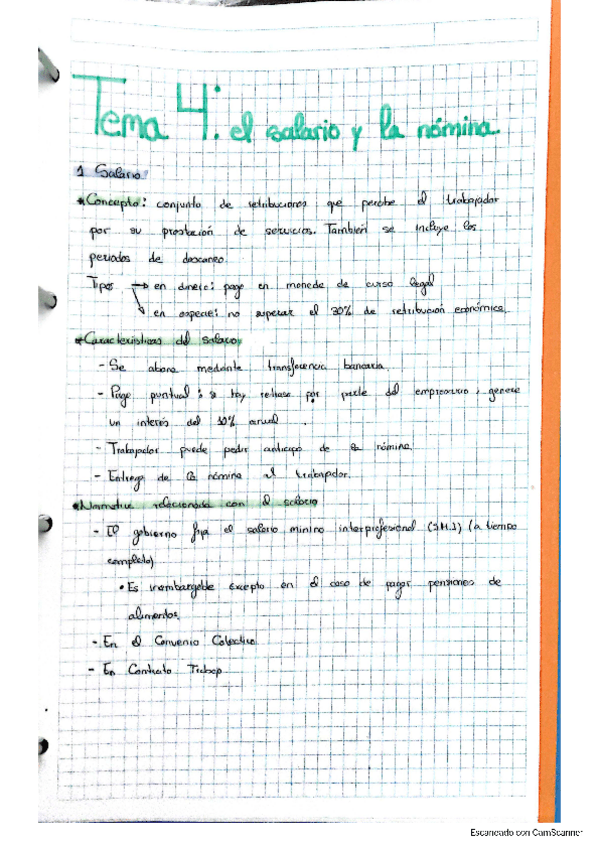 Tema 4: el salario y la nómina.
1 Salario
* Concepto: conjunto de retribuciones que percibe el trabajador
por su prestación de servicios. También se incluye los
periodos de descanso.
Tipos → en dinero: pago en moneda de curso legal
→ en especie: no superar el 30% de retribución económica.
* Características del salario
- Se abona mediante transferencia bancaria.
- Pago puntual: si hay retraso por parte del empresario, genera
un interés del 10% anual.
- Trabajador puede pedir anticipo de la nómina.
- Entrega de la nómina al trabajador.
* Normativa relacionada con el salario
- El gobierno fija el salario mínimo interprofesional (S.M.I) (a tiempo
completo)
• Es inembargable excepto en el caso de pagar pensiones de
alimentos.
- En el Convenio Colectivo
- En Contrato Trabajo
Escaneado con CamScanner